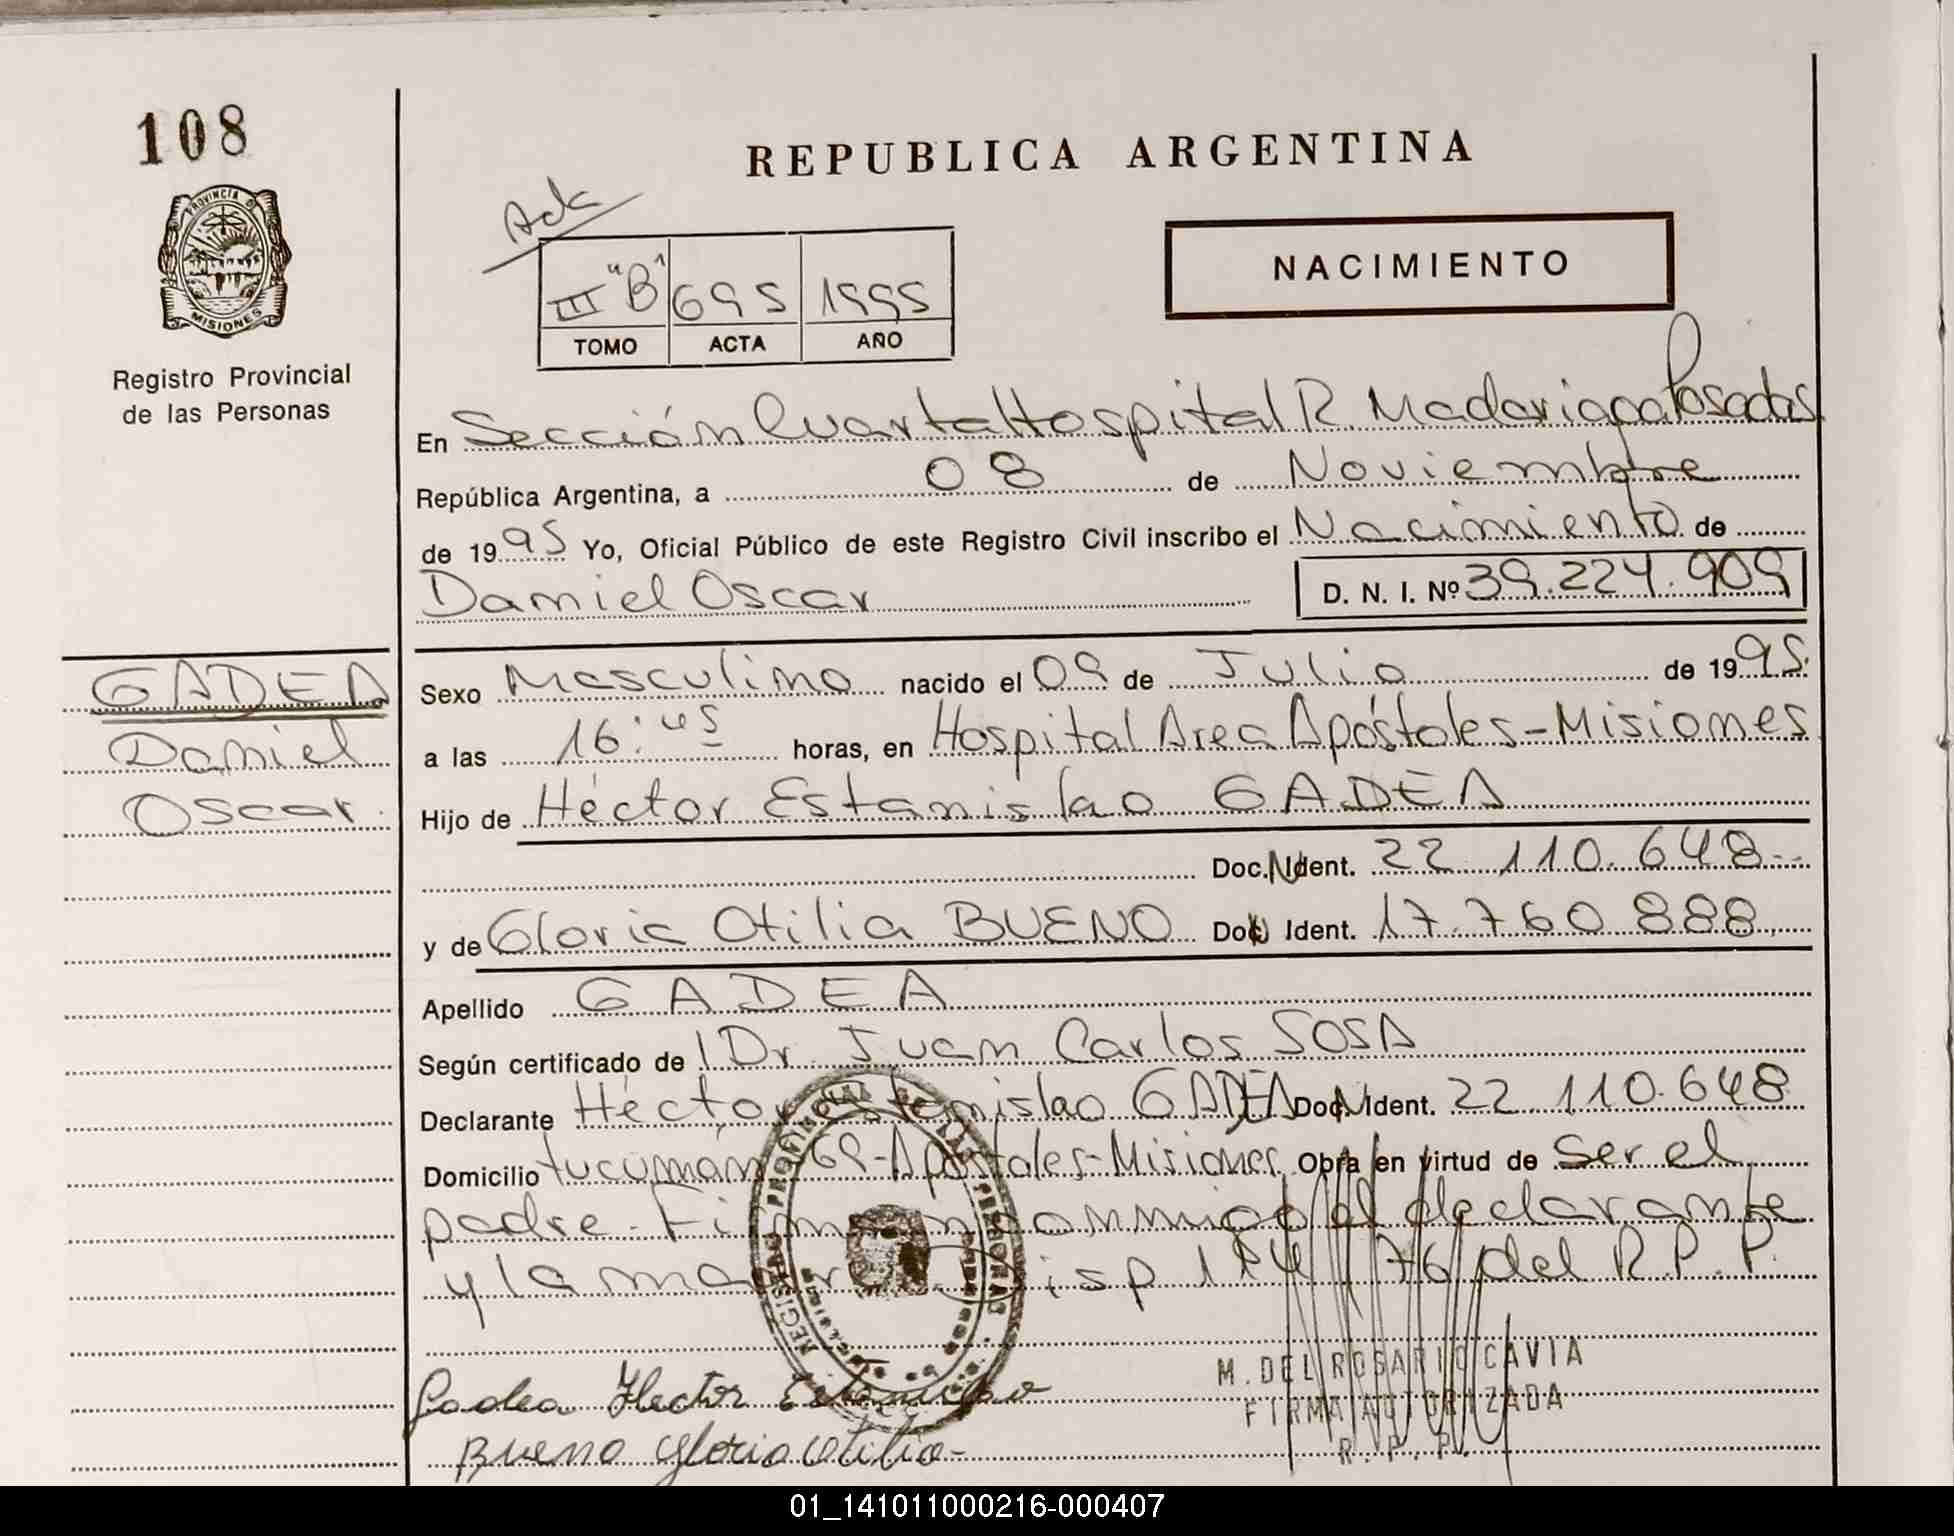 108
PROVINCIA DE
MISIONES
Registro Provincial
de las Personas
REPUBLICA ARGENTINA
NACIMIENTO
III "B" 695 1995
TOMO ACTA AÑO
En Sección Cuarta Hospital R. Madariaga Posadas
República Argentina, a 08 de Noviembre
de 1995 Yo, Oficial Público de este Registro Civil inscribo el Nacimiento de
Daniel Oscar D. N. I. Nº 39.224.909
GADEA
Daniel
Oscar.
Sexo Masculino nacido el 09 de Julio de 1995.
a las 16:45 horas, en Hospital Area Apóstoles-Misiones
Hijo de Héctor Estanislao GADEA
Doc. Ident. 22.110.648
y de Gloria Otilia BUENO Doc. Ident. 17.760.888
Apellido GADEA
Según certificado de Dr. Juan Carlos SOSA
Declarante Héctor Estanislao GADEA Doc. Ident. 22.110.648
Domicilio tucumán 69-Apóstoles-Misiones Obra en virtud de Ser el
padre. Firman conmigo el declarante
y la madre. Disp 76 del R.P.P.
Gadea Hector Estanislao
Bueno Gloria Otilia-
M. DEL ROSARIO CAVIA
FIRMA AUTORIZADA
R. P. P.
01_141011000216-000407